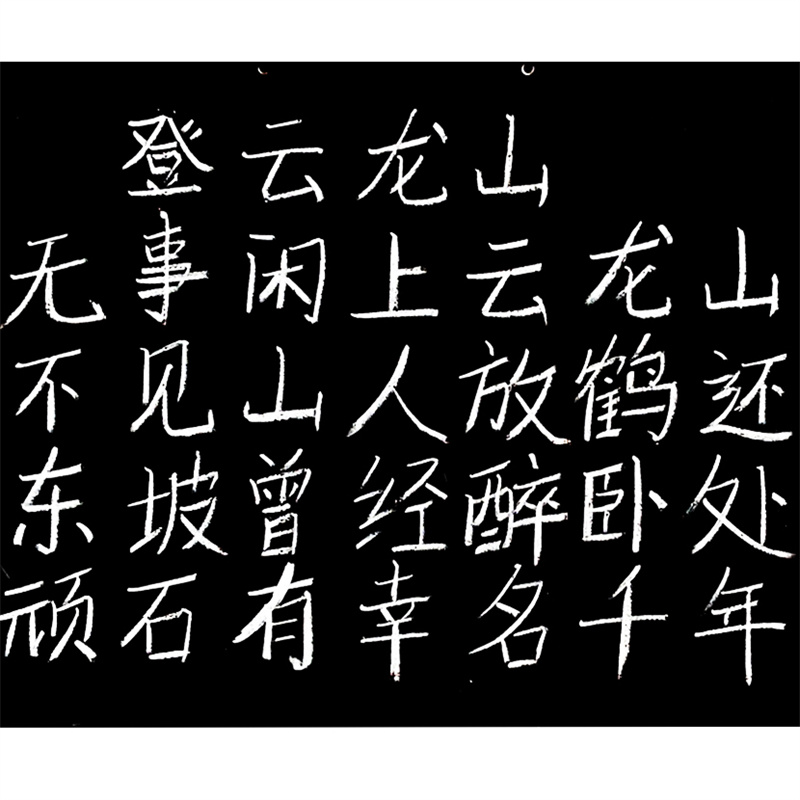 登云龙山
无事闲上云龙山
不见山人放鹤还
东坡曾经醉卧处
顽石有幸名千年